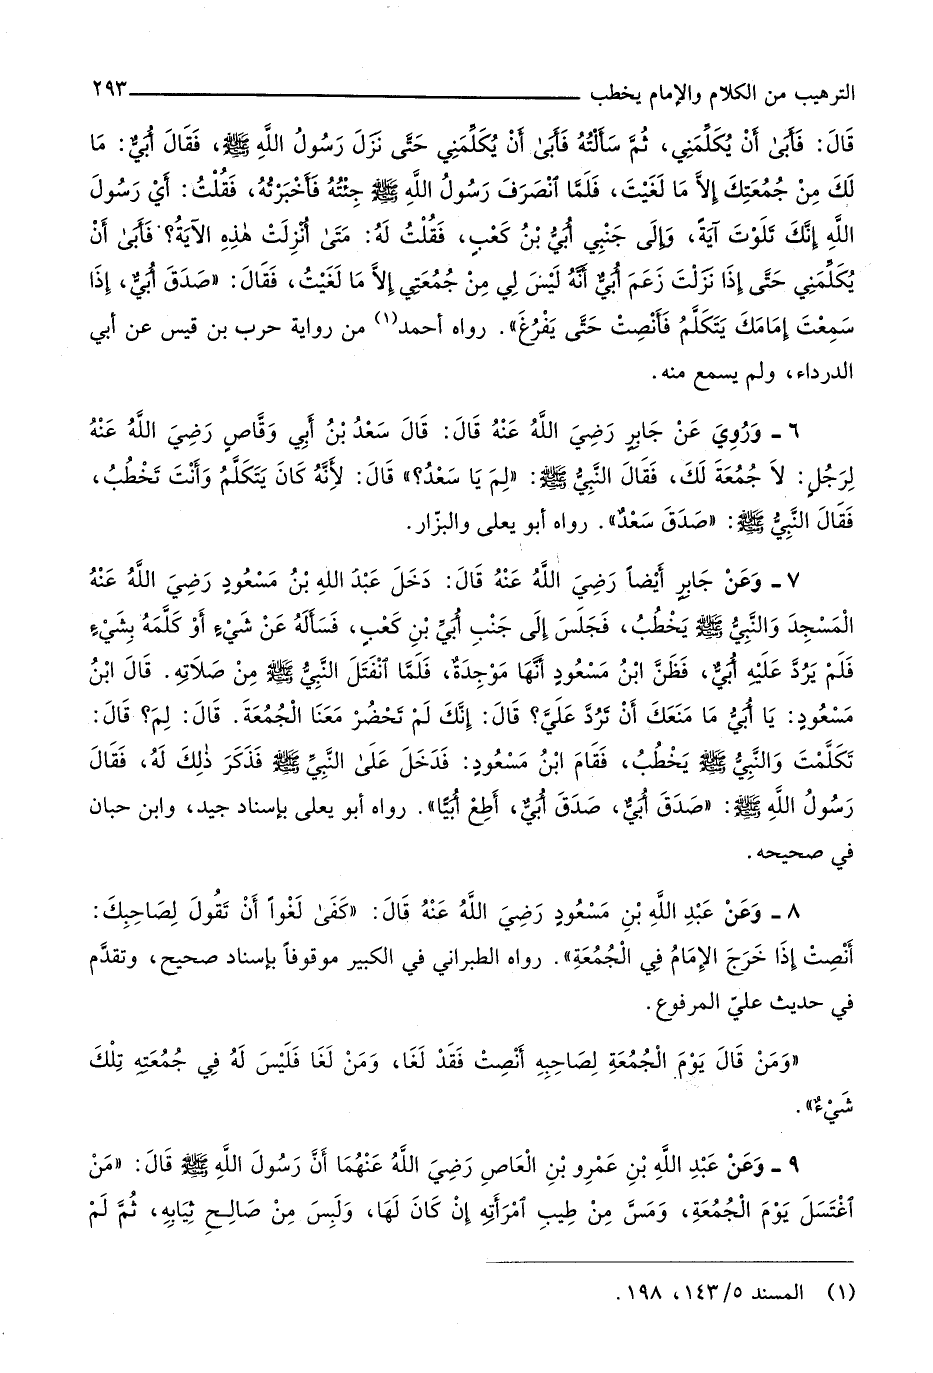 الترهيب من الكلام والإمام يخطب ٢٩٣
قَالَ: فَأَبَىٰ أَنْ يُكَلِّمَنِي، ثُمَّ سَأَلْتُهُ فَأَبَىٰ أَنْ يُكَلِّمَنِي حَتَّى نَزَلَ رَسُولُ اللَّهِ ﷺ، فَقَالَ أُبَيٌّ: مَا
لَكَ مِنْ جُمُعَتِكَ إِلاَّ مَا لَغَيْتَ، فَلَمَّا ٱنْصَرَفَ رَسُولُ اللَّهِ ﷺ جِئْتُهُ فَأَخْبَرْتُهُ، فَقُلْتُ: أَيْ رَسُولَ
اللَّهِ إِنَّكَ تَلَوْتَ آيَةً، وَإِلَى جَنْبِي أُبَيُّ بْنُ كَعْبٍ، فَقُلْتُ لَهُ: مَتَىٰ أُنْزِلَتْ هٰذِهِ الآيَةُ؟ فَأَبَىٰ أَنْ
يُكَلِّمَنِي حَتَّى إِذَا نَزَلْتَ زَعَمَ أُبَيٌّ أَنَّهُ لَيْسَ لِي مِنْ جُمُعَتِي إِلاَّ مَا لَغَيْتُ، فَقَالَ: «صَدَقَ أُبَيٌّ، إِذَا
سَمِعْتَ إِمَامَكَ يَتَكَلَّمُ فَأَنْصِتْ حَتَّى يَفْرُغَ». رواه أحمد(١) من رواية حرب بن قيس عن أبي
الدرداء، ولم يسمع منه.
٦ ـ وَرُوِيَ عَنْ جَابِرٍ رَضِيَ اللَّهُ عَنْهُ قَالَ: قَالَ سَعْدُ بْنُ أَبِي وَقَّاصٍ رَضِيَ اللَّهُ عَنْهُ
لِرَجُلٍ: لاَ جُمُعَةَ لَكَ، فَقَالَ النَّبِيُّ ﷺ: «لِمَ يَا سَعْدُ؟» قَالَ: لأَنَّهُ كَانَ يَتَكَلَّمُ وَأَنْتَ تَخْطُبُ،
فَقَالَ النَّبِيُّ ﷺ: «صَدَقَ سَعْدٌ». رواه أبو يعلى والبزّار.
٧ ـ وَعَنْ جَابِرٍ أَيْضاً رَضِيَ اللَّهُ عَنْهُ قَالَ: دَخَلَ عَبْدُ اللهِ بْنُ مَسْعُودٍ رَضِيَ اللَّهُ عَنْهُ
الْمَسْجِدَ وَالنَّبِيُّ ﷺ يَخْطُبُ، فَجَلَسَ إِلَى جَنْبِ أُبَيِّ بْنِ كَعْبٍ، فَسَأَلَهُ عَنْ شَيْءٍ أَوْ كَلَّمَهُ بِشَيْءٍ
فَلَمْ يَرُدَّ عَلَيْهِ أُبَيٌّ، فَظَنَّ ابْنُ مَسْعُودٍ أَنَّهَا مَوْجِدَةٌ، فَلَمَّا ٱنْفَتَلَ النَّبِيُّ ﷺ مِنْ صَلاَتِهِ. قَالَ ابْنُ
مَسْعُودٍ: يَا أُبَيُّ مَا مَنَعَكَ أَنْ تَرُدَّ عَلَيَّ؟ قَالَ: إِنَّكَ لَمْ تَحْضُرْ مَعَنَا الْجُمُعَةَ. قَالَ: لِمَ؟ قَالَ:
تَكَلَّمْتَ وَالنَّبِيُّ ﷺ يَخْطُبُ، فَقَامَ ابْنُ مَسْعُودٍ: فَدَخَلَ عَلَىٰ النَّبِيِّ ﷺ فَذَكَرَ ذٰلِكَ لَهُ، فَقَالَ
رَسُولُ اللَّهِ ﷺ: «صَدَقَ أُبَيٌّ، صَدَقَ أُبَيٌّ، أَطِعْ أُبَيًّا». رواه أبو يعلى بإسناد جيد، وابن حبان
في صحيحه.
٨ ـ وَعَنْ عَبْدِ اللَّهِ بْنِ مَسْعُودٍ رَضِيَ اللَّهُ عَنْهُ قَالَ: «كَفَىٰ لَغْواً أَنْ تَقُولَ لِصَاحِبِكَ:
أَنْصِتْ إِذَا خَرَجَ الإِمَامُ فِي الْجُمُعَةِ». رواه الطبراني في الكبير موقوفاً بإسناد صحيح، وتقدَّم
في حديث عليّ المرفوع.
«وَمَنْ قَالَ يَوْمَ الْجُمُعَةِ لِصَاحِبِهِ أَنْصِتْ فَقَدْ لَغَا، وَمَنْ لَغَا فَلَيْسَ لَهُ فِي جُمُعَتِهِ تِلْكَ
شَيْءٌ».
٩ ـ وَعَنْ عَبْدِ اللَّهِ بْنِ عَمْرِو بْنِ الْعَاصِ رَضِيَ اللَّهُ عَنْهُمَا أَنَّ رَسُولَ اللَّهِ ﷺ قَالَ: «مَنْ
ٱغْتَسَلَ يَوْمَ الْجُمُعَةِ، وَمَسَّ مِنْ طِيبِ ٱمْرَأَتِهِ إِنْ كَانَ لَهَا، وَلَبِسَ مِنْ صَالِحِ ثِيَابِهِ، ثُمَّ لَمْ
(١) المسند ٥/ ١٤٣، ١٩٨.